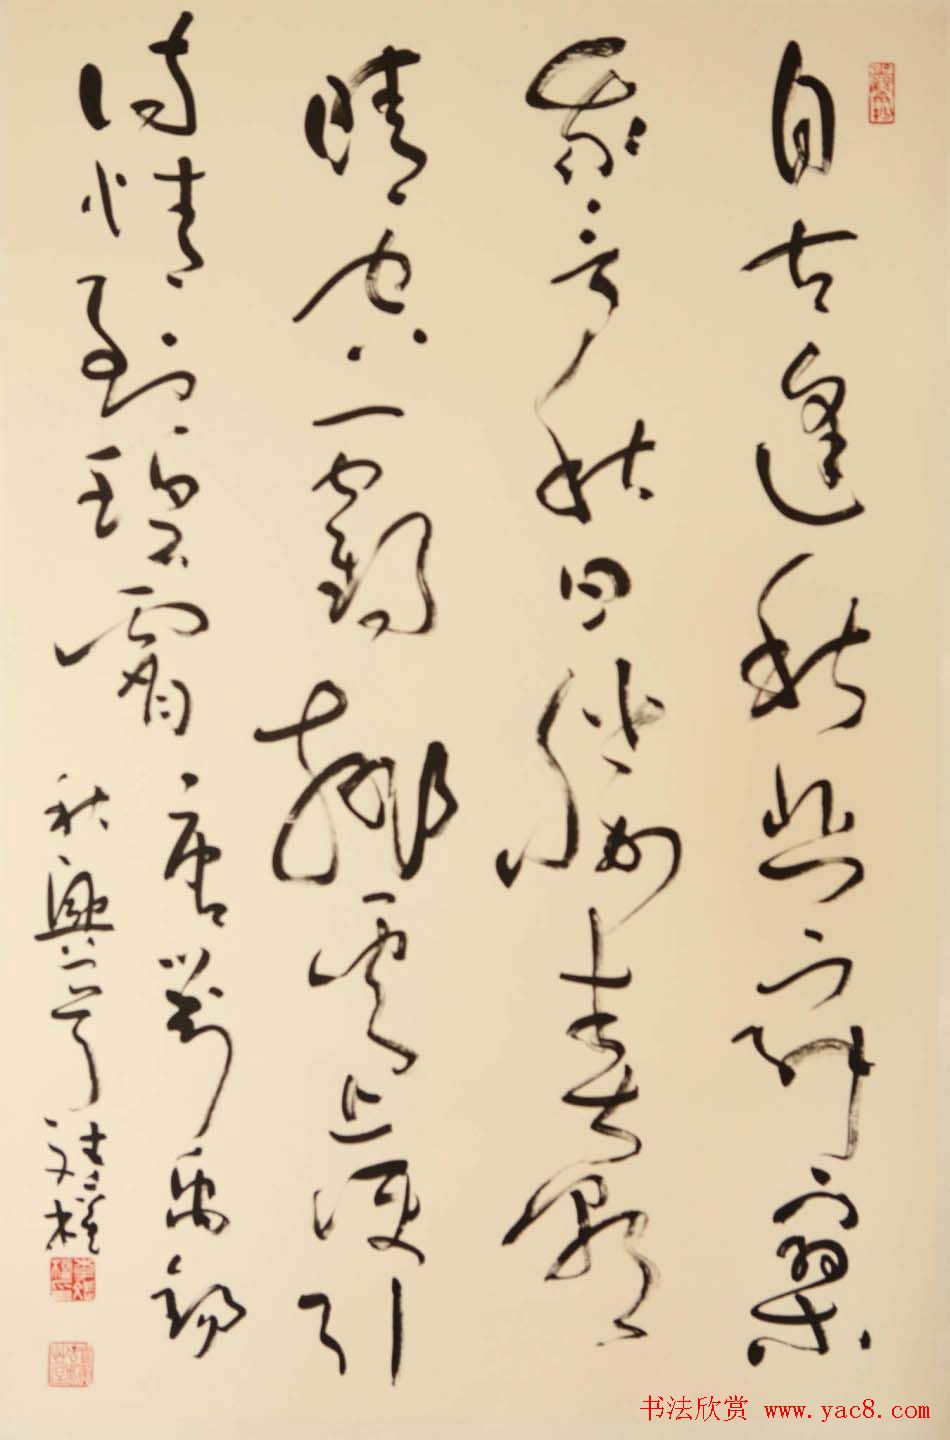 自古逢秋悲寂寥
我言秋日勝春朝
晴空一鶴排雲上便引
詩情到碧霄 唐劉禹錫
秋興
书法欣赏 www.yac8.com